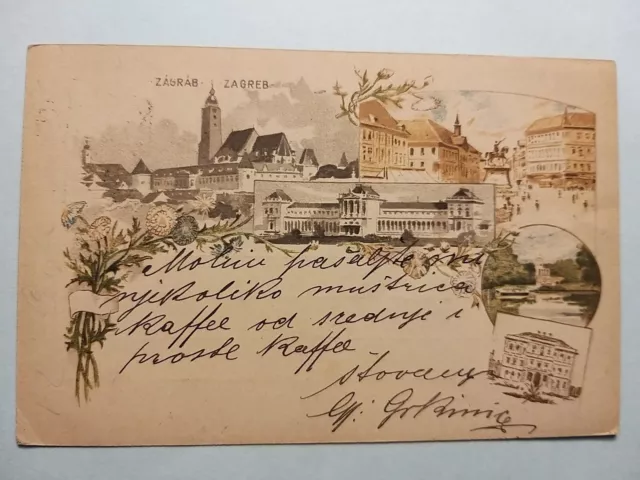 ZÁGRÁB - ZAGREB
Molim pašaljte mi
njekoliko muštrica
kaffee od srednje i
proste kaffee
štovanjem
Gj: Grkinic